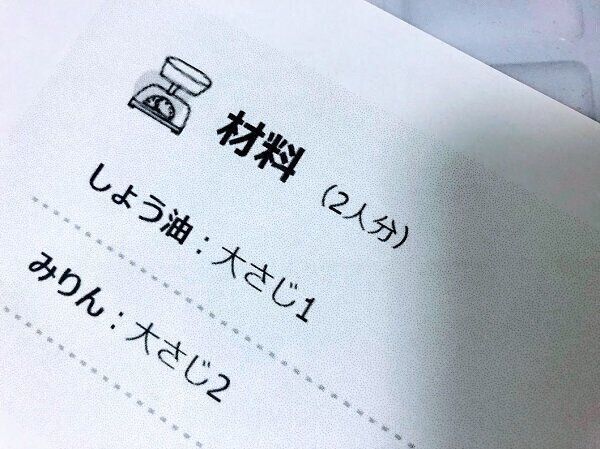 材料 （2人分）
しょう油：大さじ1
みりん：大さじ2